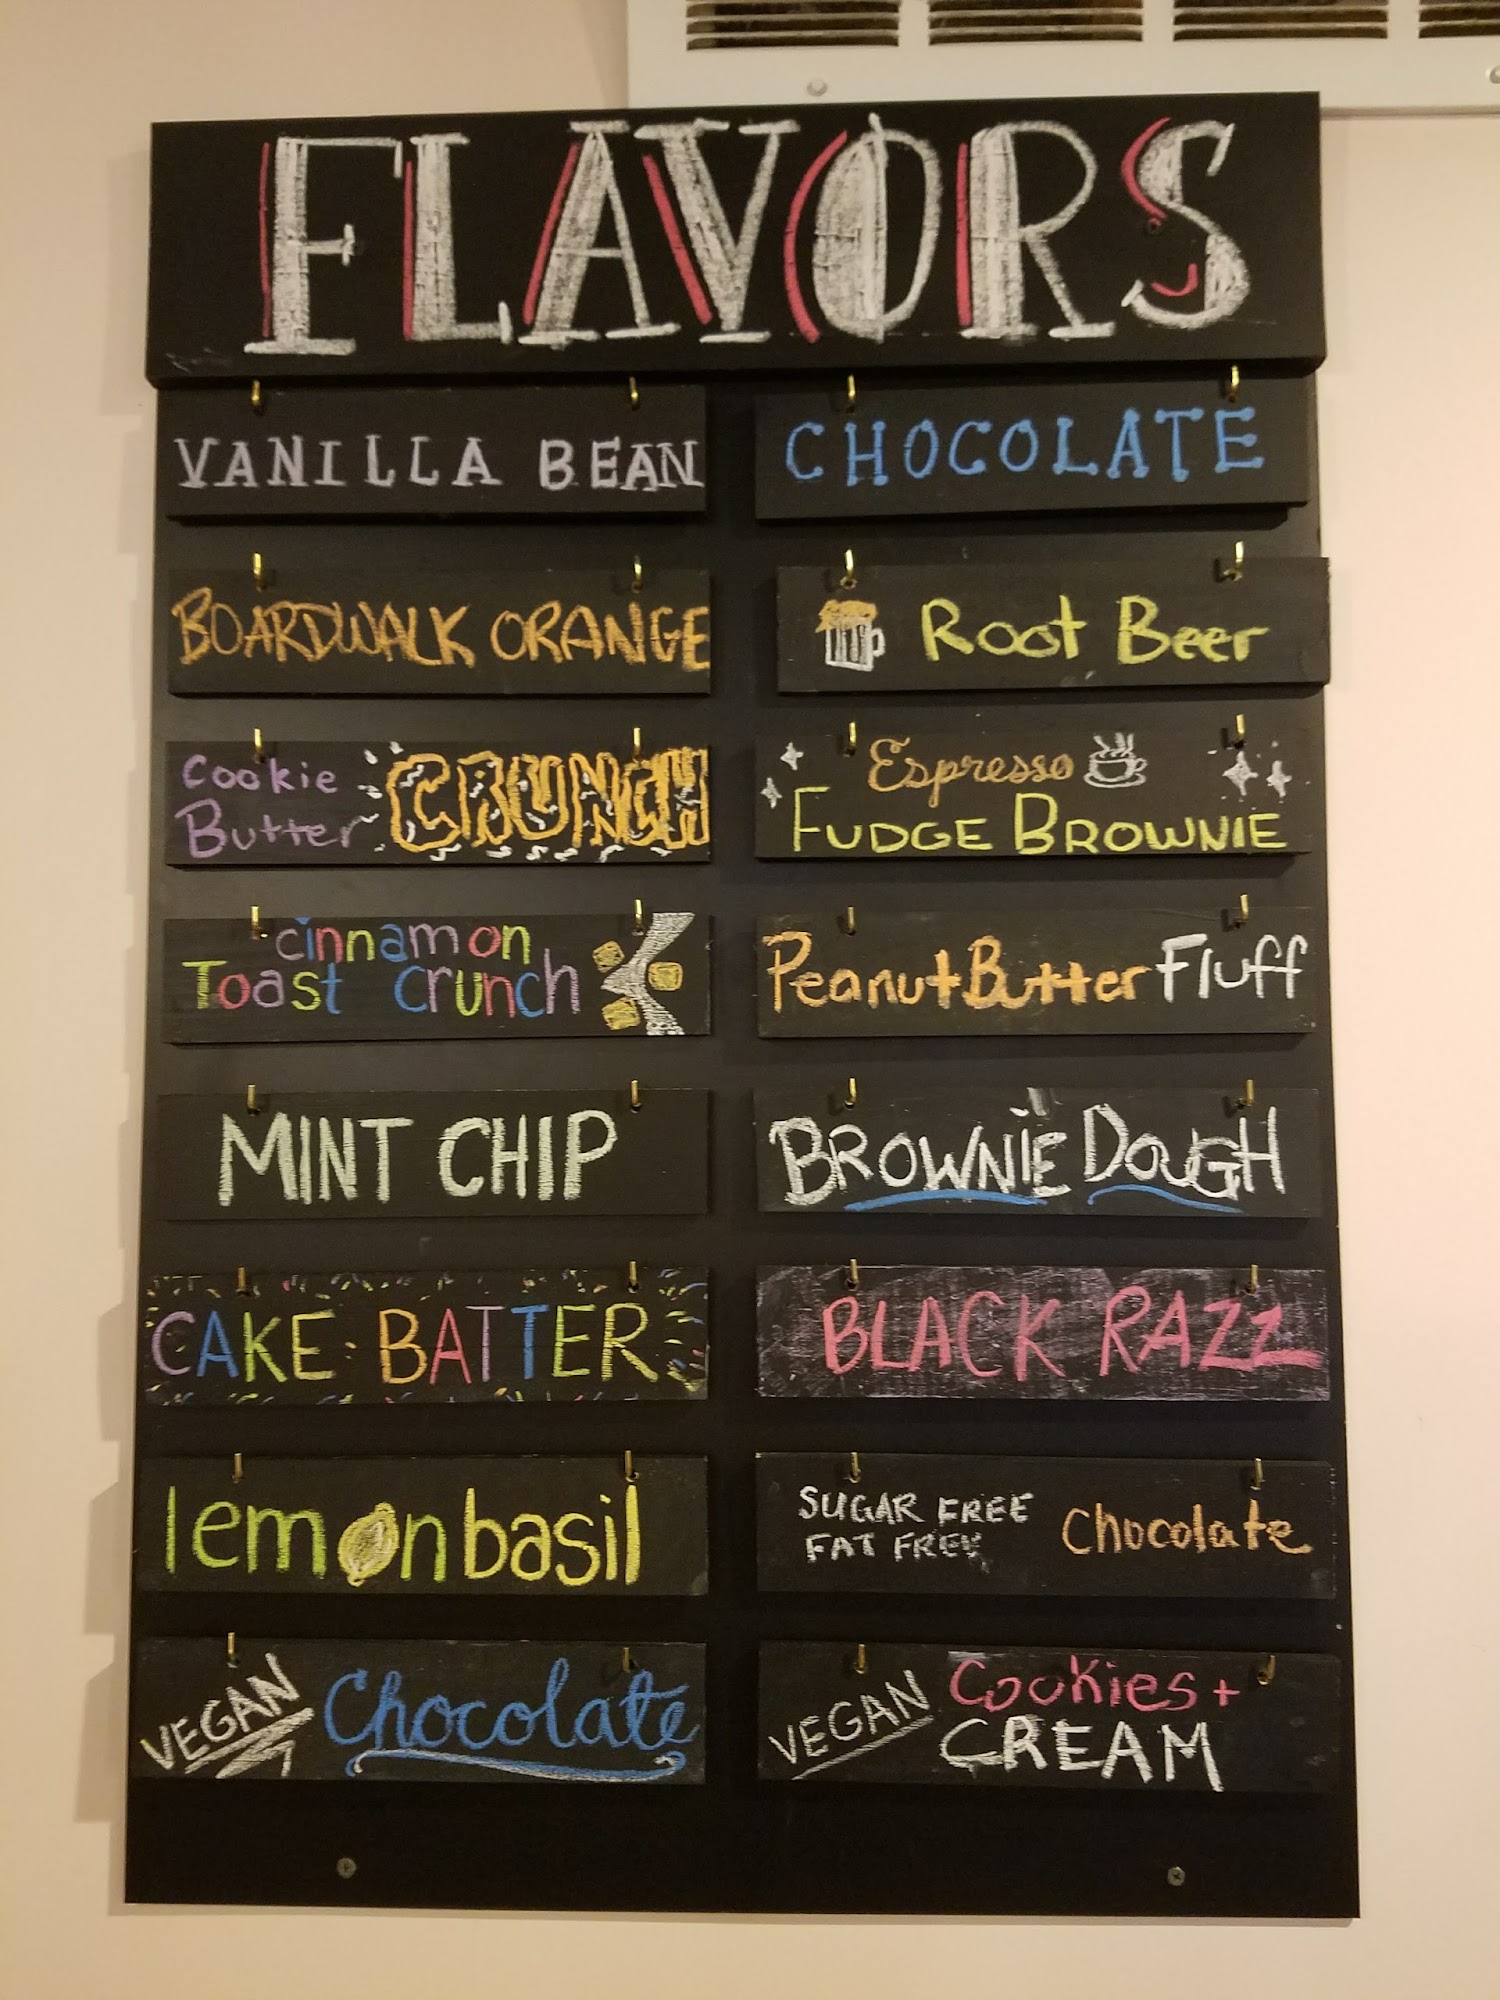 FLAVORS
VANILLA BEAN
CHOCOLATE
BOARDWALK ORANGE
Root Beer
Cookie
Butter CRUNCH
Espresso
FUDGE BROWNIE
cinnamon
Toast crunch
Peanut Butter Fluff
MINT CHIP
BROWNiE DOUGH
CAKE BATTER
BLACK RAZZ
lemon basil
SUGAR FREE
FAT FREE
Chocolate
VEGAN Chocolate
VEGAN Cookies +
CREAM